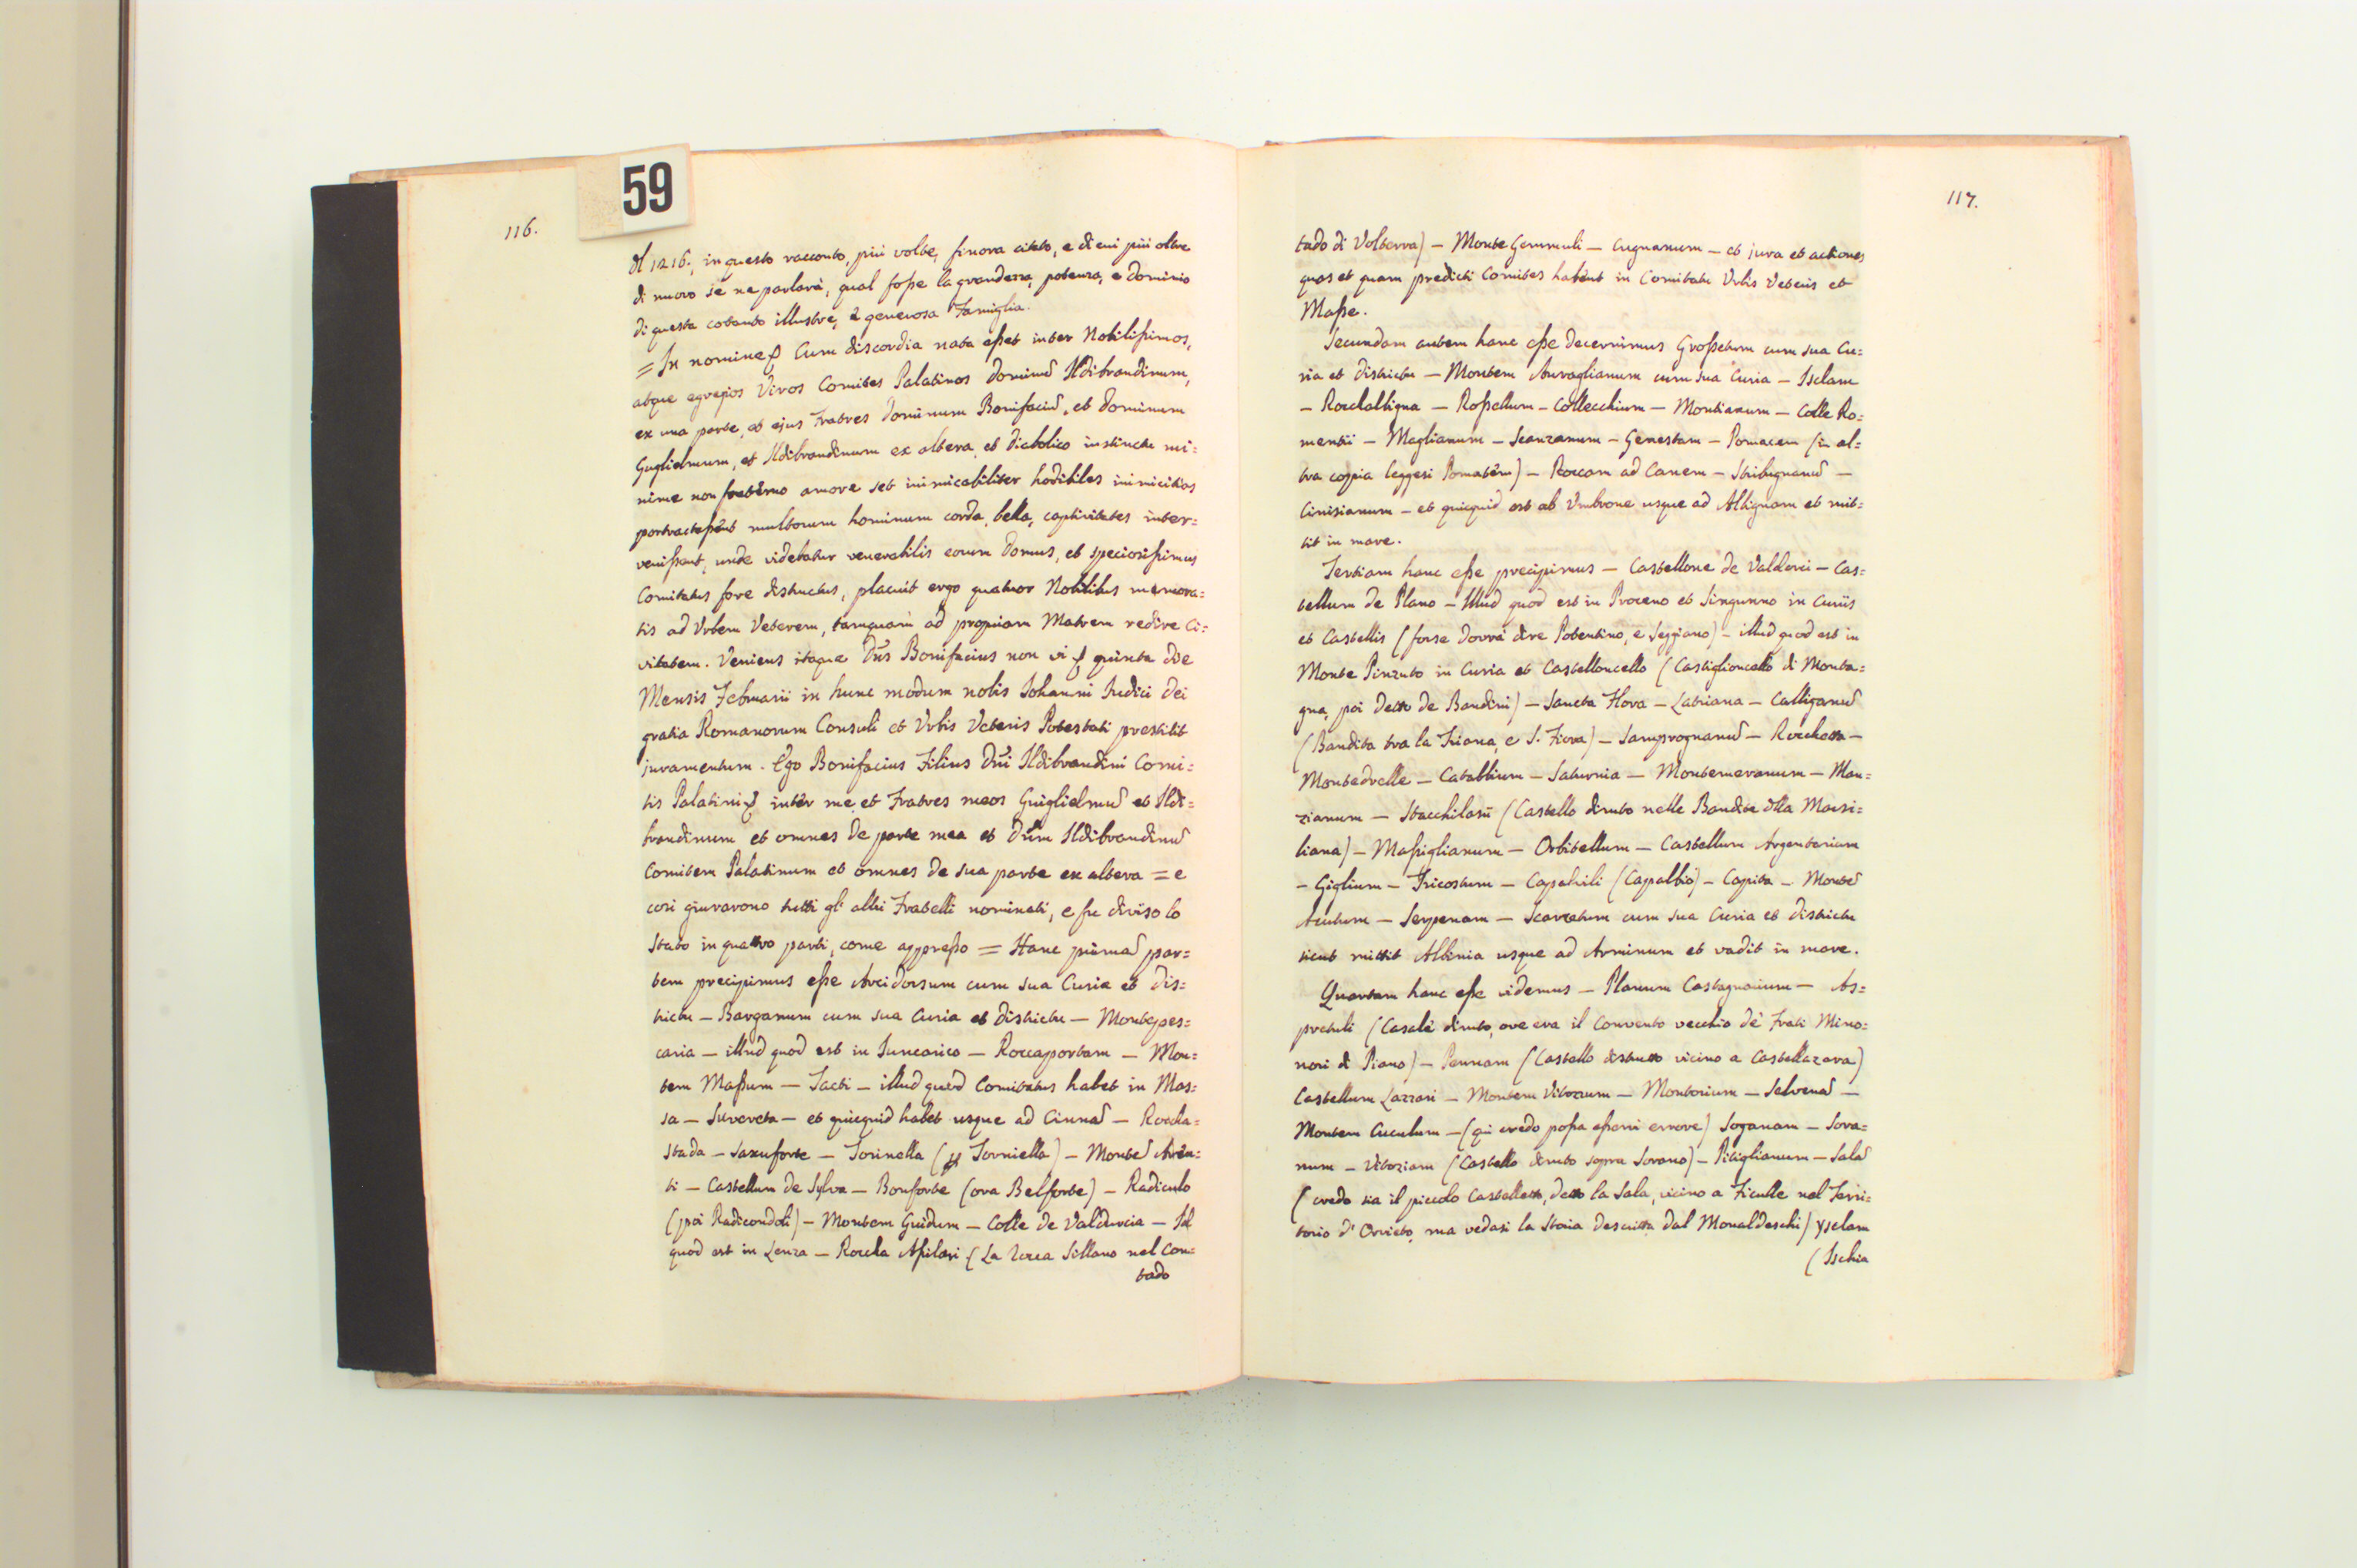 59
116.
Il 1216., in questo racconto, più volte, finora citato, e di cui più oltre
di nuovo se ne parlarà, qual foſse la grandezza, potenza, e dominio
di questa cotanto illustre, e generosa Famiglia.
= In nomine Cum discordia nata eſset inter Nobiliſsimos,
atque egregios Viros Comites Palatinos Dominũ Ildibrandinum,
ex una parte, et ejus Fratres Dominum Bonifaciũ, et Dominum
Guglielmum, et Ildibrandinum ex altera, et diabolico instinctu mi=
nime non fraterno amore set inimicabiliter hodibiles inimicitias
portractaſsent multorum hominum corda, bella, captivitates inter=
veniſsent, unde videbatur venerabilis eorum Domus, et speciosiſsimus
Comitatus fore destructus, placuit ergo quatuor Nobilibus memora=
tis ad Urbem Veterem, tamquam ad propriam Matrem redire Ci=
vitatem. Veniens itaque Dñs Bonifacius non vi quinta die
Mensis Februarii in hunc modum nobis Johanni Judici Dei
gratia Romanorum Consuli et Urbis Veteris Potestati prestitit
juramentum. Ego Bonifacius Filius Dñi Ildibrandini Comi=
tis Palatini inter me et Fratres meos Guiglielmũ et Ildi=
brandinum et omnes de parte mea et Dñm Ildibrandinũ
Comitem Palatinum et omnes de sua parte ex altera = e
così giurarono tutti gl' altri Fratelli nominati, e fu diviso lo
Stato in quattro parti, come appreſso = Hanc primã par=
tem precipimus eſse Arcidorsum cum sua Curia et dis=
trictu — Barganum cum sua Curia et districtu — Montepes=
caria — illud quod est in Juncarico — Roccaportam — Mon=
tem Maſsum — Tatti — illud quod Comitatus habet in Mas=
sa — Suvereta — et quicquid habet usque ad Cinnã — Roccha=
stada — Saxuforte — Torinella ( Torniella) — Montẽ Aren=
ti — Castellum de Sylva — Bonforte (ora Belforte) — Radiculo
(poi Radicondoli) — Montem Guidum — Colle de Valdurcia — Id
quod est in Lenza — Roccha Aſsilari (La Rocca Sillano nel Con=
tado
117.
tado di Volterra) — Monte Gemmuli — Cugnanum — et jura et actiones
quas et quam predicti Comites habent in Comitatu Urbis Veteris et
Maſse.
Secundam autem hanc eſse decernimus Groſsetum cum sua Cu=
ria et districtu — Montem Curvaglianum cum sua Curia — Isclam
— Rocchalbigna — Roſsellum — Collecchium — Montianum — Colle Ro=
mentii — Maglianum — Scanzanum — Genestam — Pomacem (in al=
tra coppia leggesi Pomatem) — Roccam ad Canem — Stribugnanũ —
Cinisianum — et quicquid est ab Umbrone usque ad Albignam et mit=
tit in mare.
Tertiam hanc eſse precipimus — Castellone de Valdorci — Cas=
tellum de Plano — Illud quod est in Proceno et Singunno in Curiis
et Castellis (forse dovrà dire Potentino, e Seggiano) — illud quod est in
Monte Pinzuto in Curia et Castelloncello (Castiglioncello di Monta=
gna, poi detto de Bandini) — Sancta Flora — Latriana — Calliganũ
(Bandita tra la Triana, e S. Fiora) — Samprognanũ — Rocchetta —
Montedrelle — Catabbium — Saturnia — Montemeranum — Man=
zianum — Stacchilasũ (Castello diruto nelle Bandite dlla Marsi=
liana) — Maſsiglianum — Orbitellum — Castellum Argentarium
— Giglium — Tricostum — Capalvili (Capalbio) — Capita — Montẽ
Acutum — Serpenam — Scarcetum cum sua Curia et districtu
sicut mittit Albinia usque ad Arminum et vadit in mare.
Quartam hanc eſse videmus — Planum Castagnarium — As=
pretuli (Casale diruto, ove era il Convento vecchio dè Frati Mino=
nori di Piano) — Pennam (Castello distrutto vicino a Castellazara)
Castellum Lazzari — Montem Vitozzum — Montorium — Selvenã —
Montem Cuculum — (qui credo poſsa eſserci errore) Soganam — Sora=
num — Vitoziam (Castello diruto sopra Sorano) — Pitiglianum — Salã
(credo sia il piccolo Castelletto, detto la Sala, vicino a Ficulle nel Terri=
torio d' Orvieto, ma vedasi la Storia descritta dal Monaldeschi) Ysclam
(Ischia